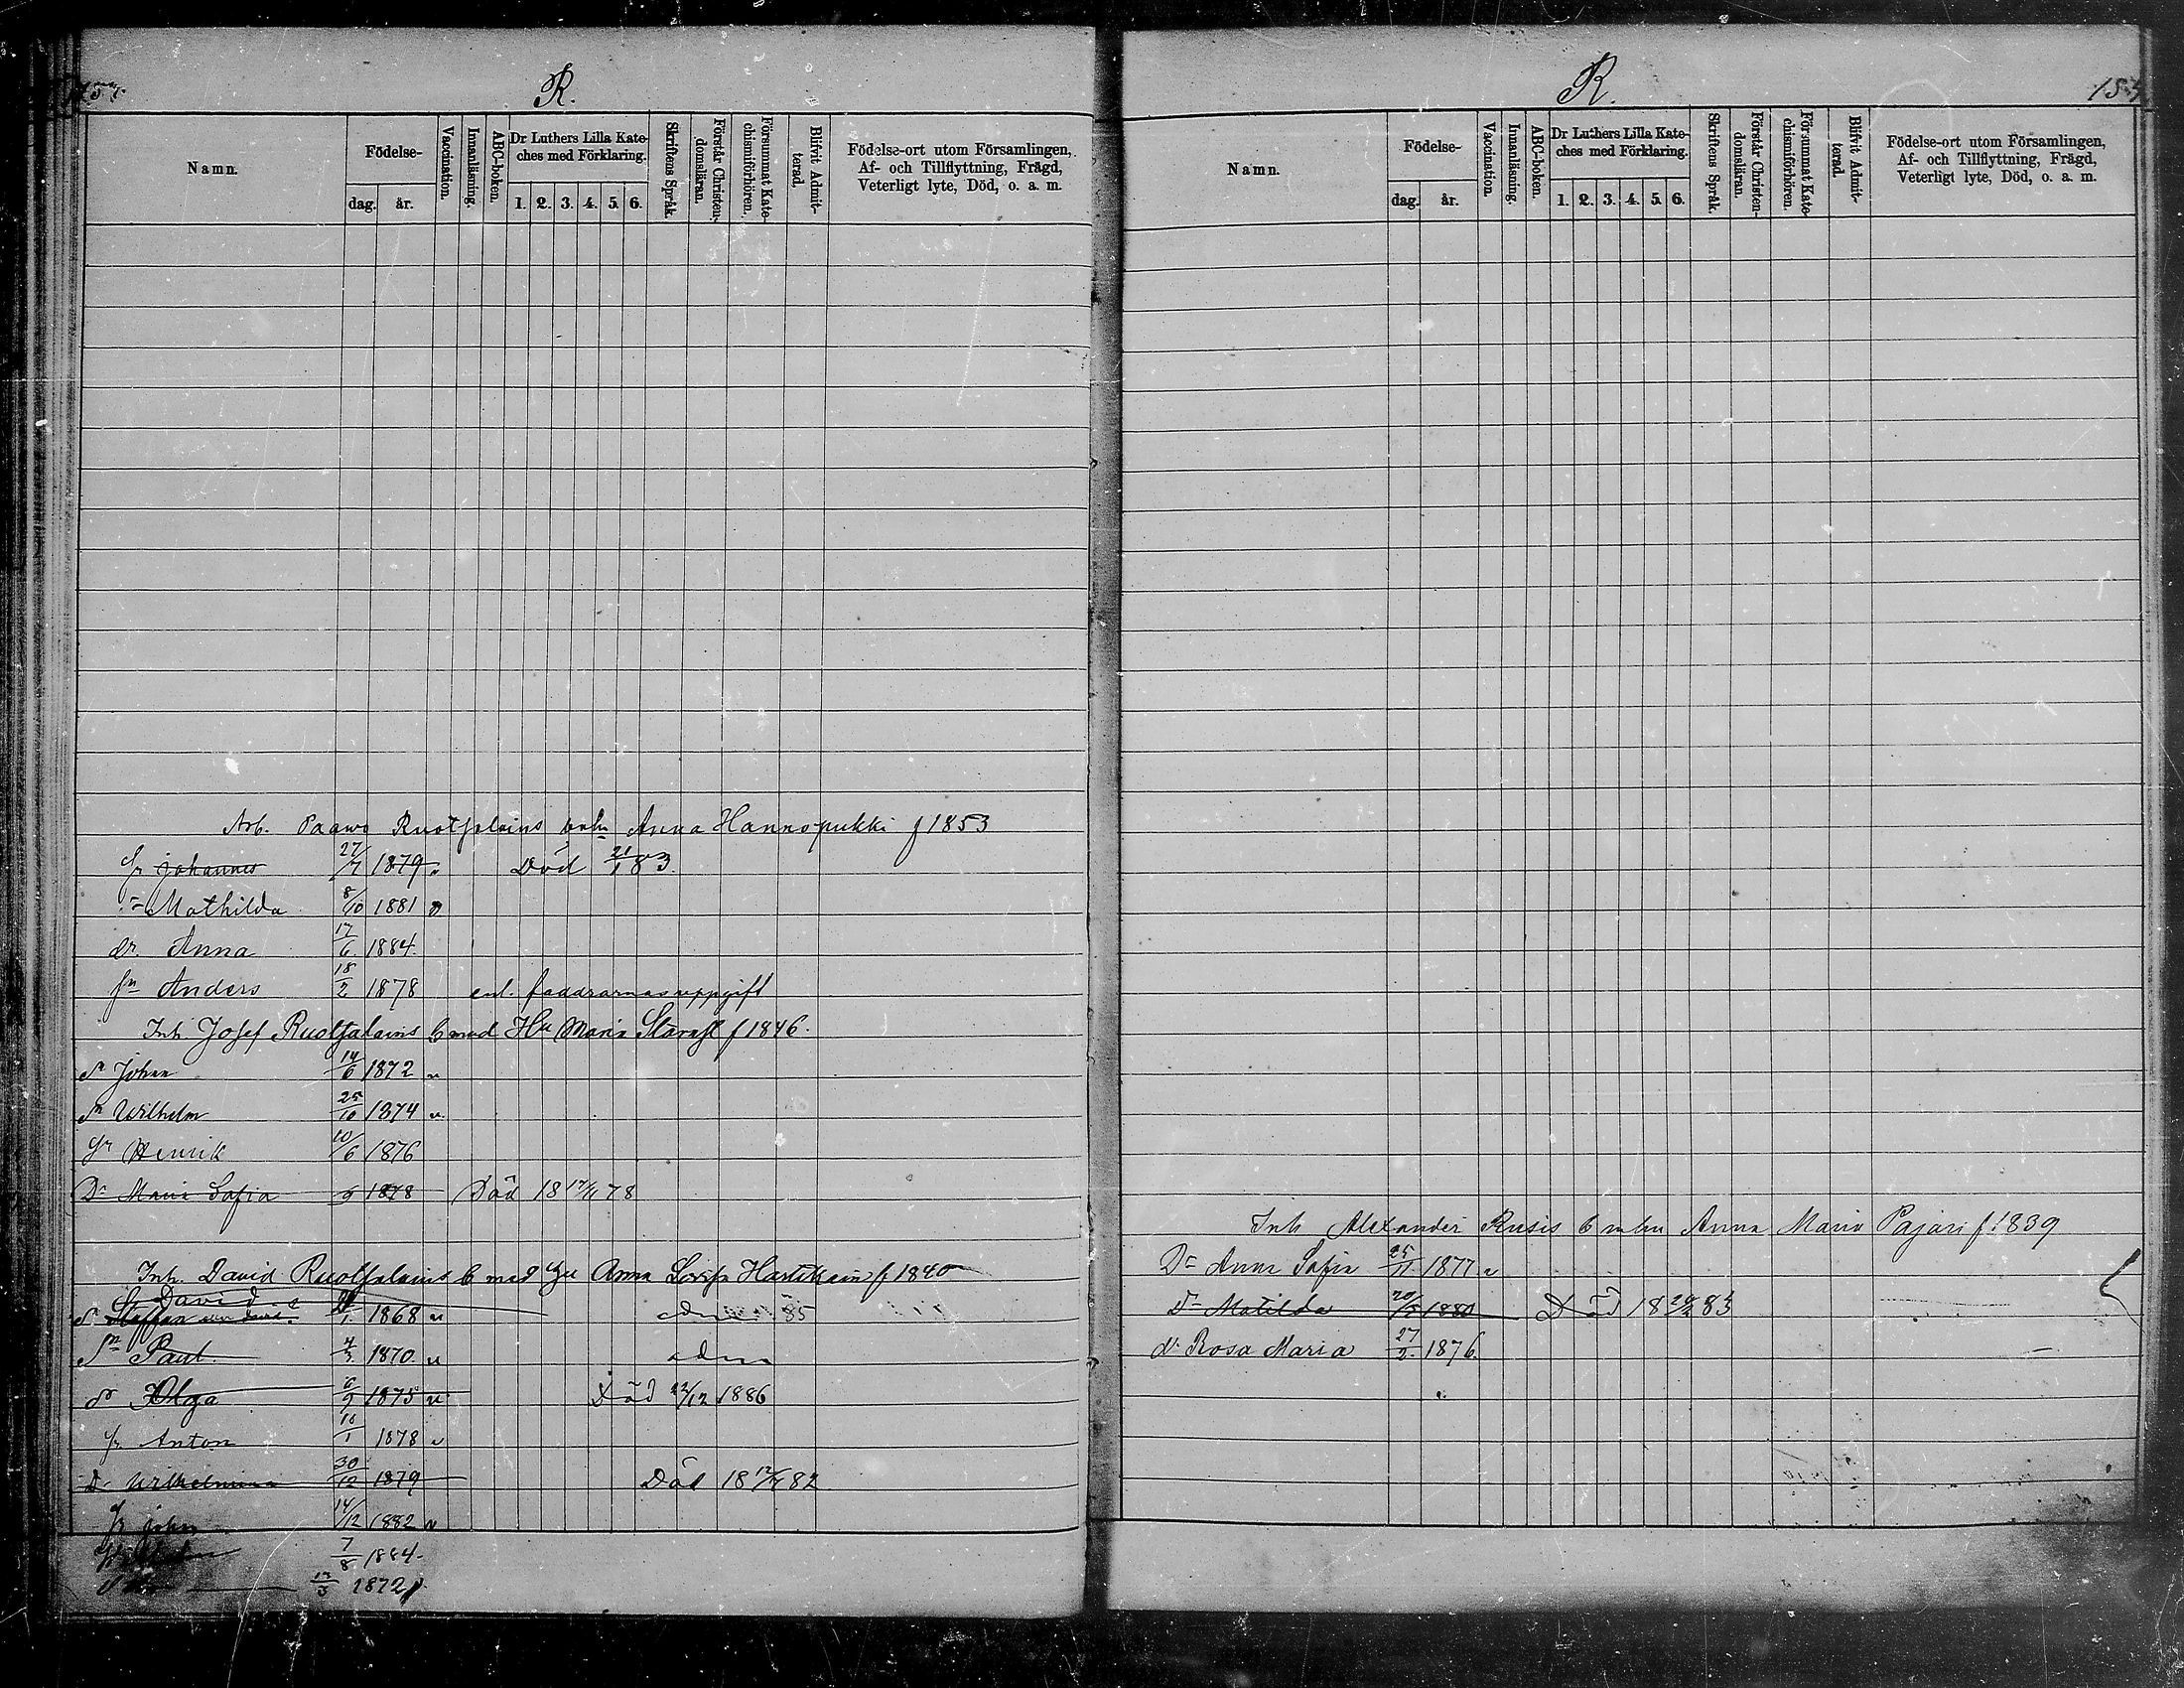 157.
R.
Namn.
Födelse-
dag.
år.
Vaccination.
Innanläsning.
ABC-boken.
Dr Luthers Lilla Kate-
ches med Förklaring.
1. 2. 3. 4. 5. 6.
Skriftens Språk.
Förstår Christen-
domsläran.
Försummat Kate-
chismiförhören.
Blifvit Admit-
terad.
Födelse-ort utom Församlingen,
Af- och Tillflyttning, Frägd,
Veterligt lyte, Död, o. a. m.
Arb. Paawo Ruotsalains Anna Hannopukki f 1853
Johannes 27/7 1879 Död 21/1 83.
Mathilda 8/10 1881
dr. Anna 17/6 1884.
Sn Anders 18/2 1878 enl. faddrarnas uppgift
Inh. Josef Ruotsalains b med Hu Maria f 1846.
Sn Johan 14/6 1872 v
Sn Wilhelm 25/10 1874 v.
Sn Henrik 10/6 1876
Dr Maria Sofia 9 1878 Död 18 17/11 78
Inh. David Ruotsalains b med Hu Anna Lovisa f 1840
David
S Staffan 1 1868 v adm 85
Sn Paul 4/3 1870. v adm
Olga 6/9 1875 v Död 22/12 1886
Sn Anton 10/1 1878 v
Dr Wilhelmina 30/12 1879 Död 18 82
Sn John 14/12 1882 v
7/8 1884.
1872
R.
Namn.
Födelse-
dag.
år.
Vaccination.
Innanläsning.
ABC-boken.
Dr Luthers Lilla Kate-
ches med Förklaring.
1. 2. 3. 4. 5. 6.
Skriftens Språk.
Förstår Christen-
domsläran.
Försummat Kate-
chismiförhören.
Blifvit Admit-
terad.
Födelse-ort utom Församlingen,
Af- och Tillflyttning, Frägd,
Veterligt lyte, Död, o. a. m.
Inh Alexander Rusis b m hu Anna Maria Pajari f 1839
Dr Anna Sofia 25/11 1877 v
Dr Matilda 20/5 1880 Död 18 83
dr Rosa Maria 27/2 1876.